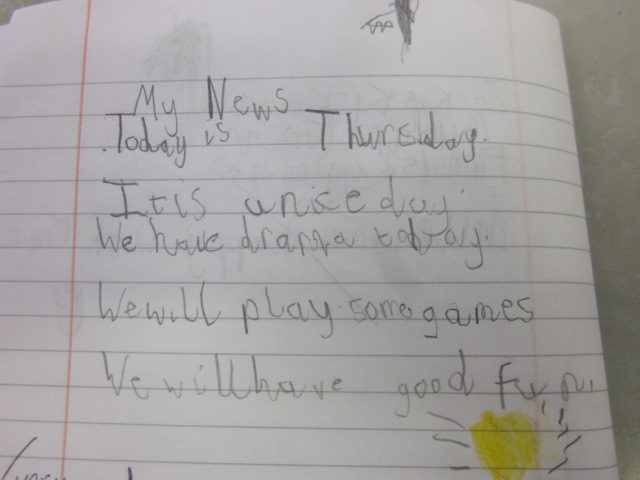 My News
Today is Thursday.
It is a nice day.
We have drama today.
We will play some games
We will have good fun.